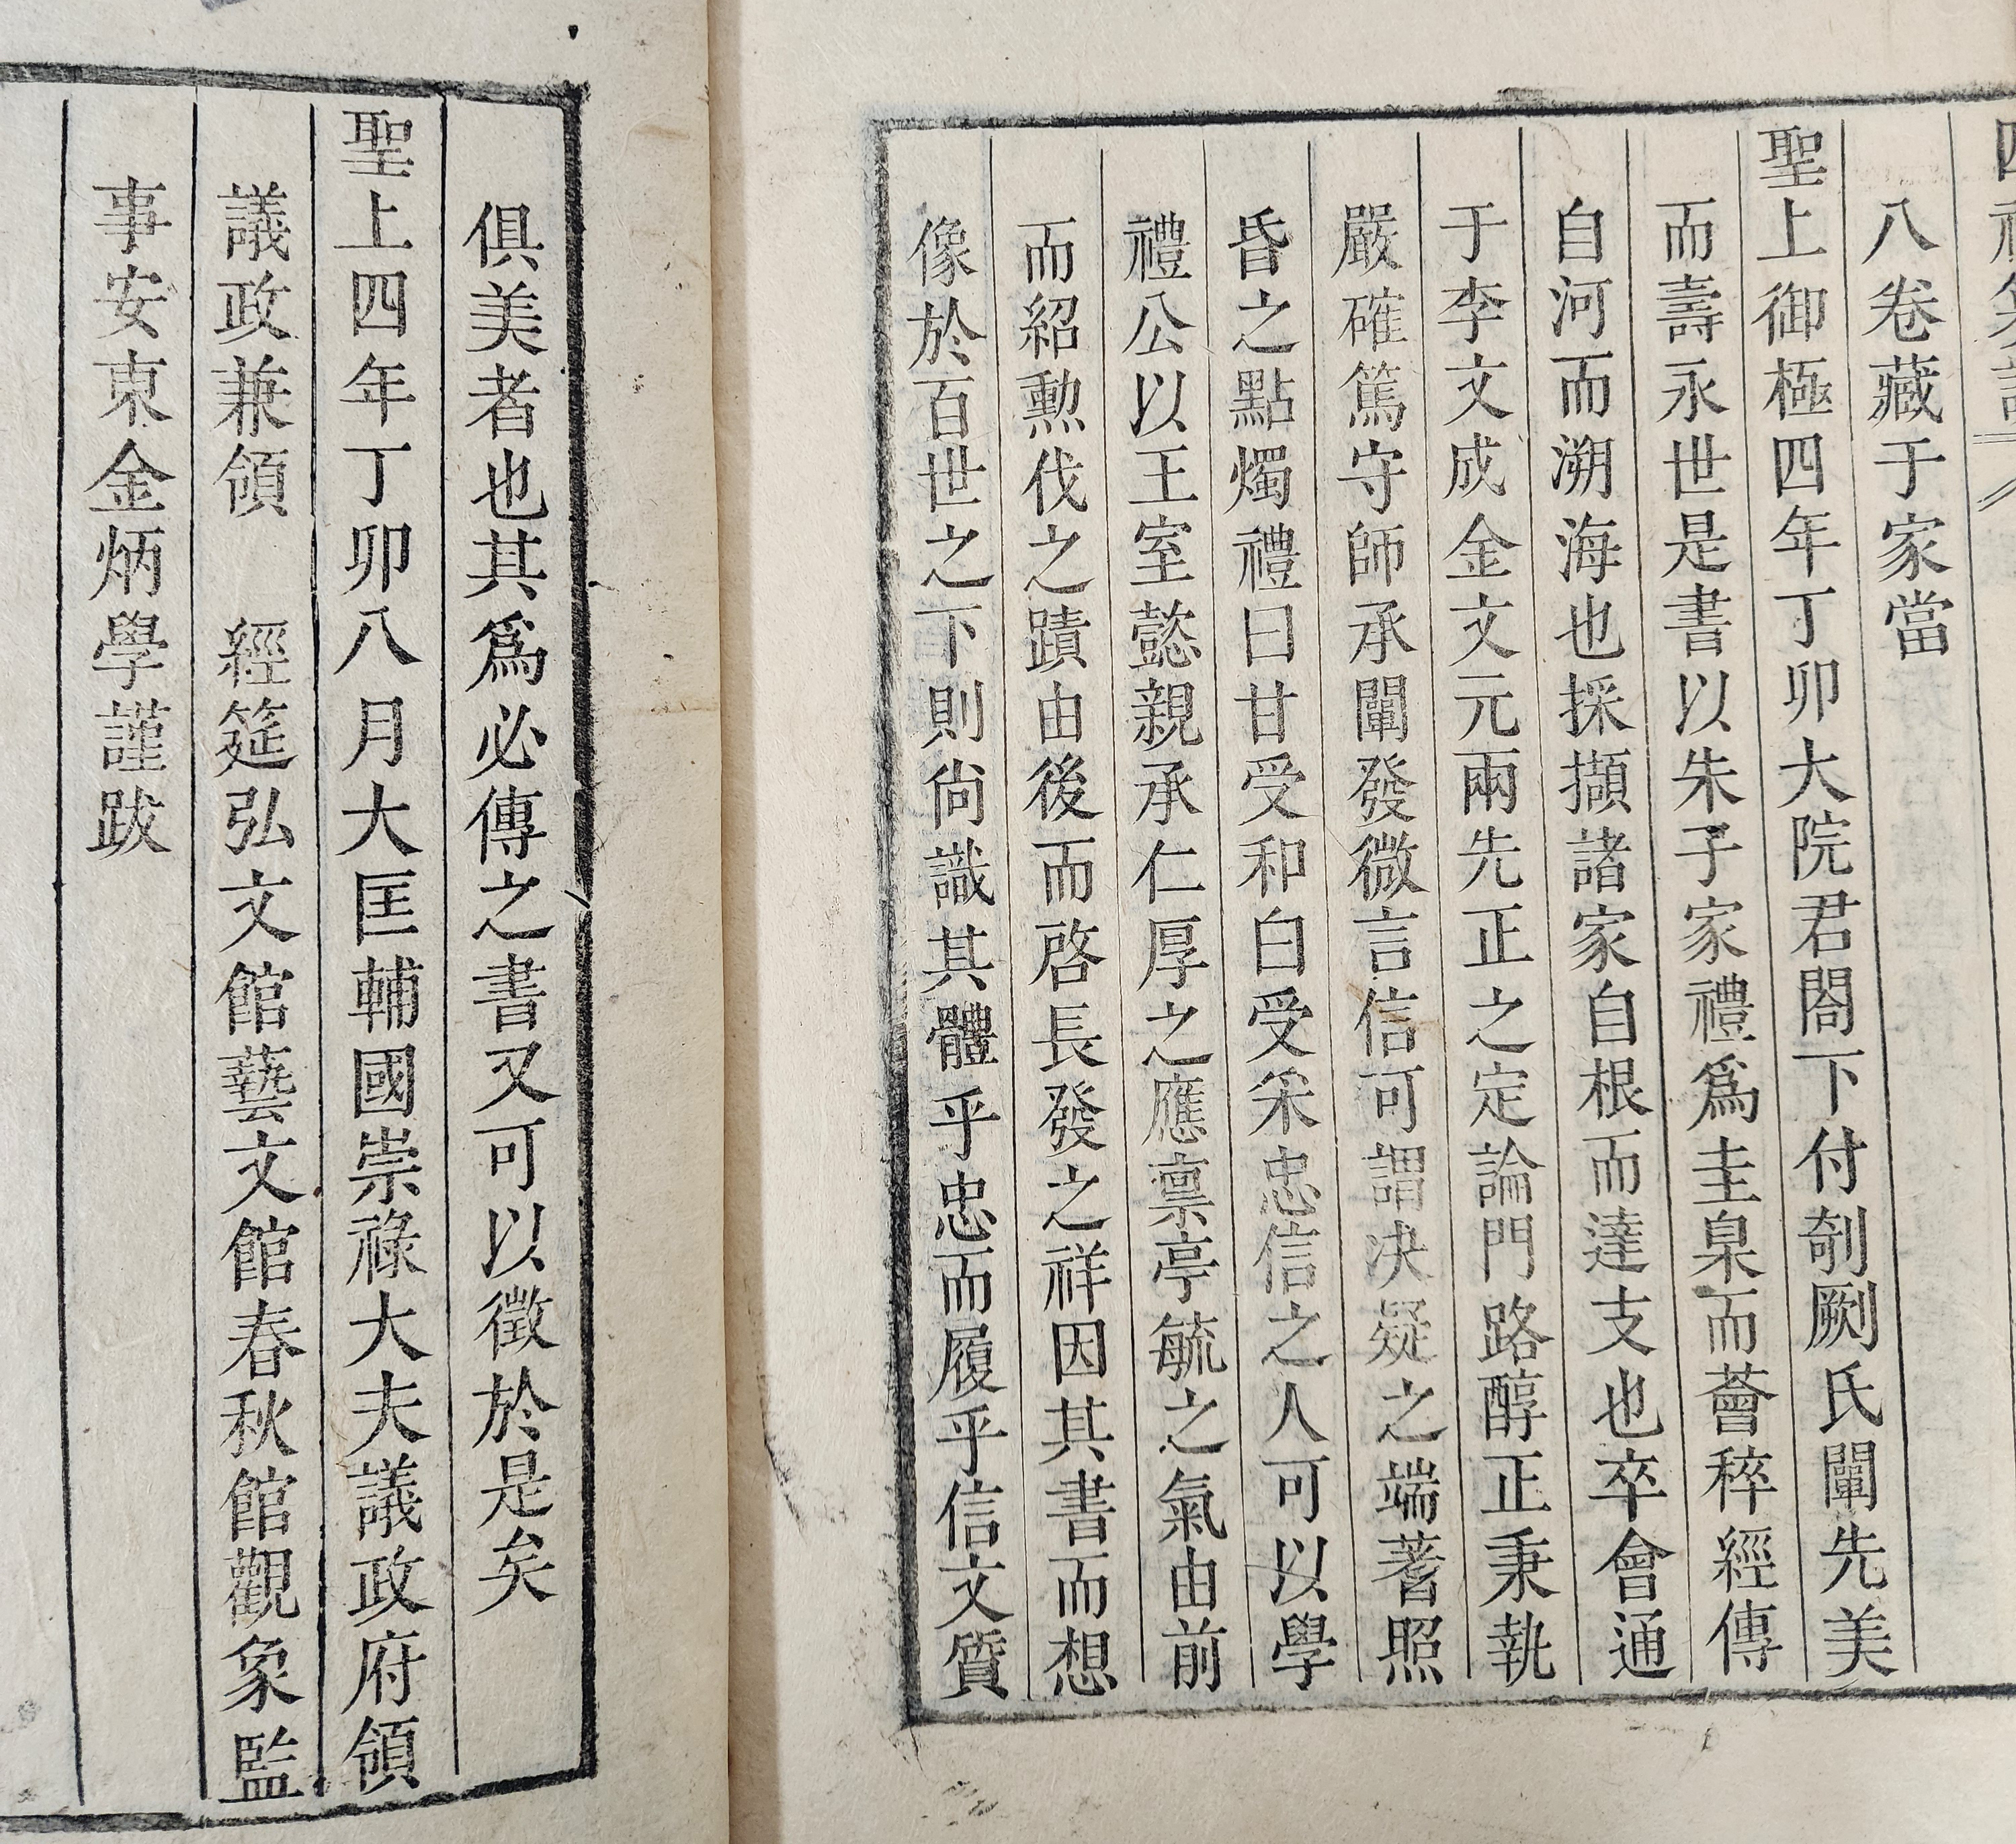 四禮
八卷藏于家當
聖上御極四年丁卯大院君閤下付剞劂氏闡先美
而壽永世是書以朱子家禮爲圭臬而薈稡經傳
自河而溯海也採擷諸家自根而達支也卒會通
于李文成金文元兩先正之定論門路醇正秉執
嚴確篤守師承闡發微言信可謂決疑之端蓍照
昏之點燭禮曰甘受和白受采忠信之人可以學
禮公以王室懿親承仁厚之應禀亭毓之氣由前
而紹勳伐之蹟由後而啓長發之祥因其書而想
像於百世之下則尙識其體乎忠而履乎信文質
俱美者也其爲必傳之書又可以徵於是矣
聖上四年丁卯八月大匡輔國崇祿大夫議政府領
議政兼領 經筵弘文館藝文館春秋館觀象監
事安東金炳學謹跋